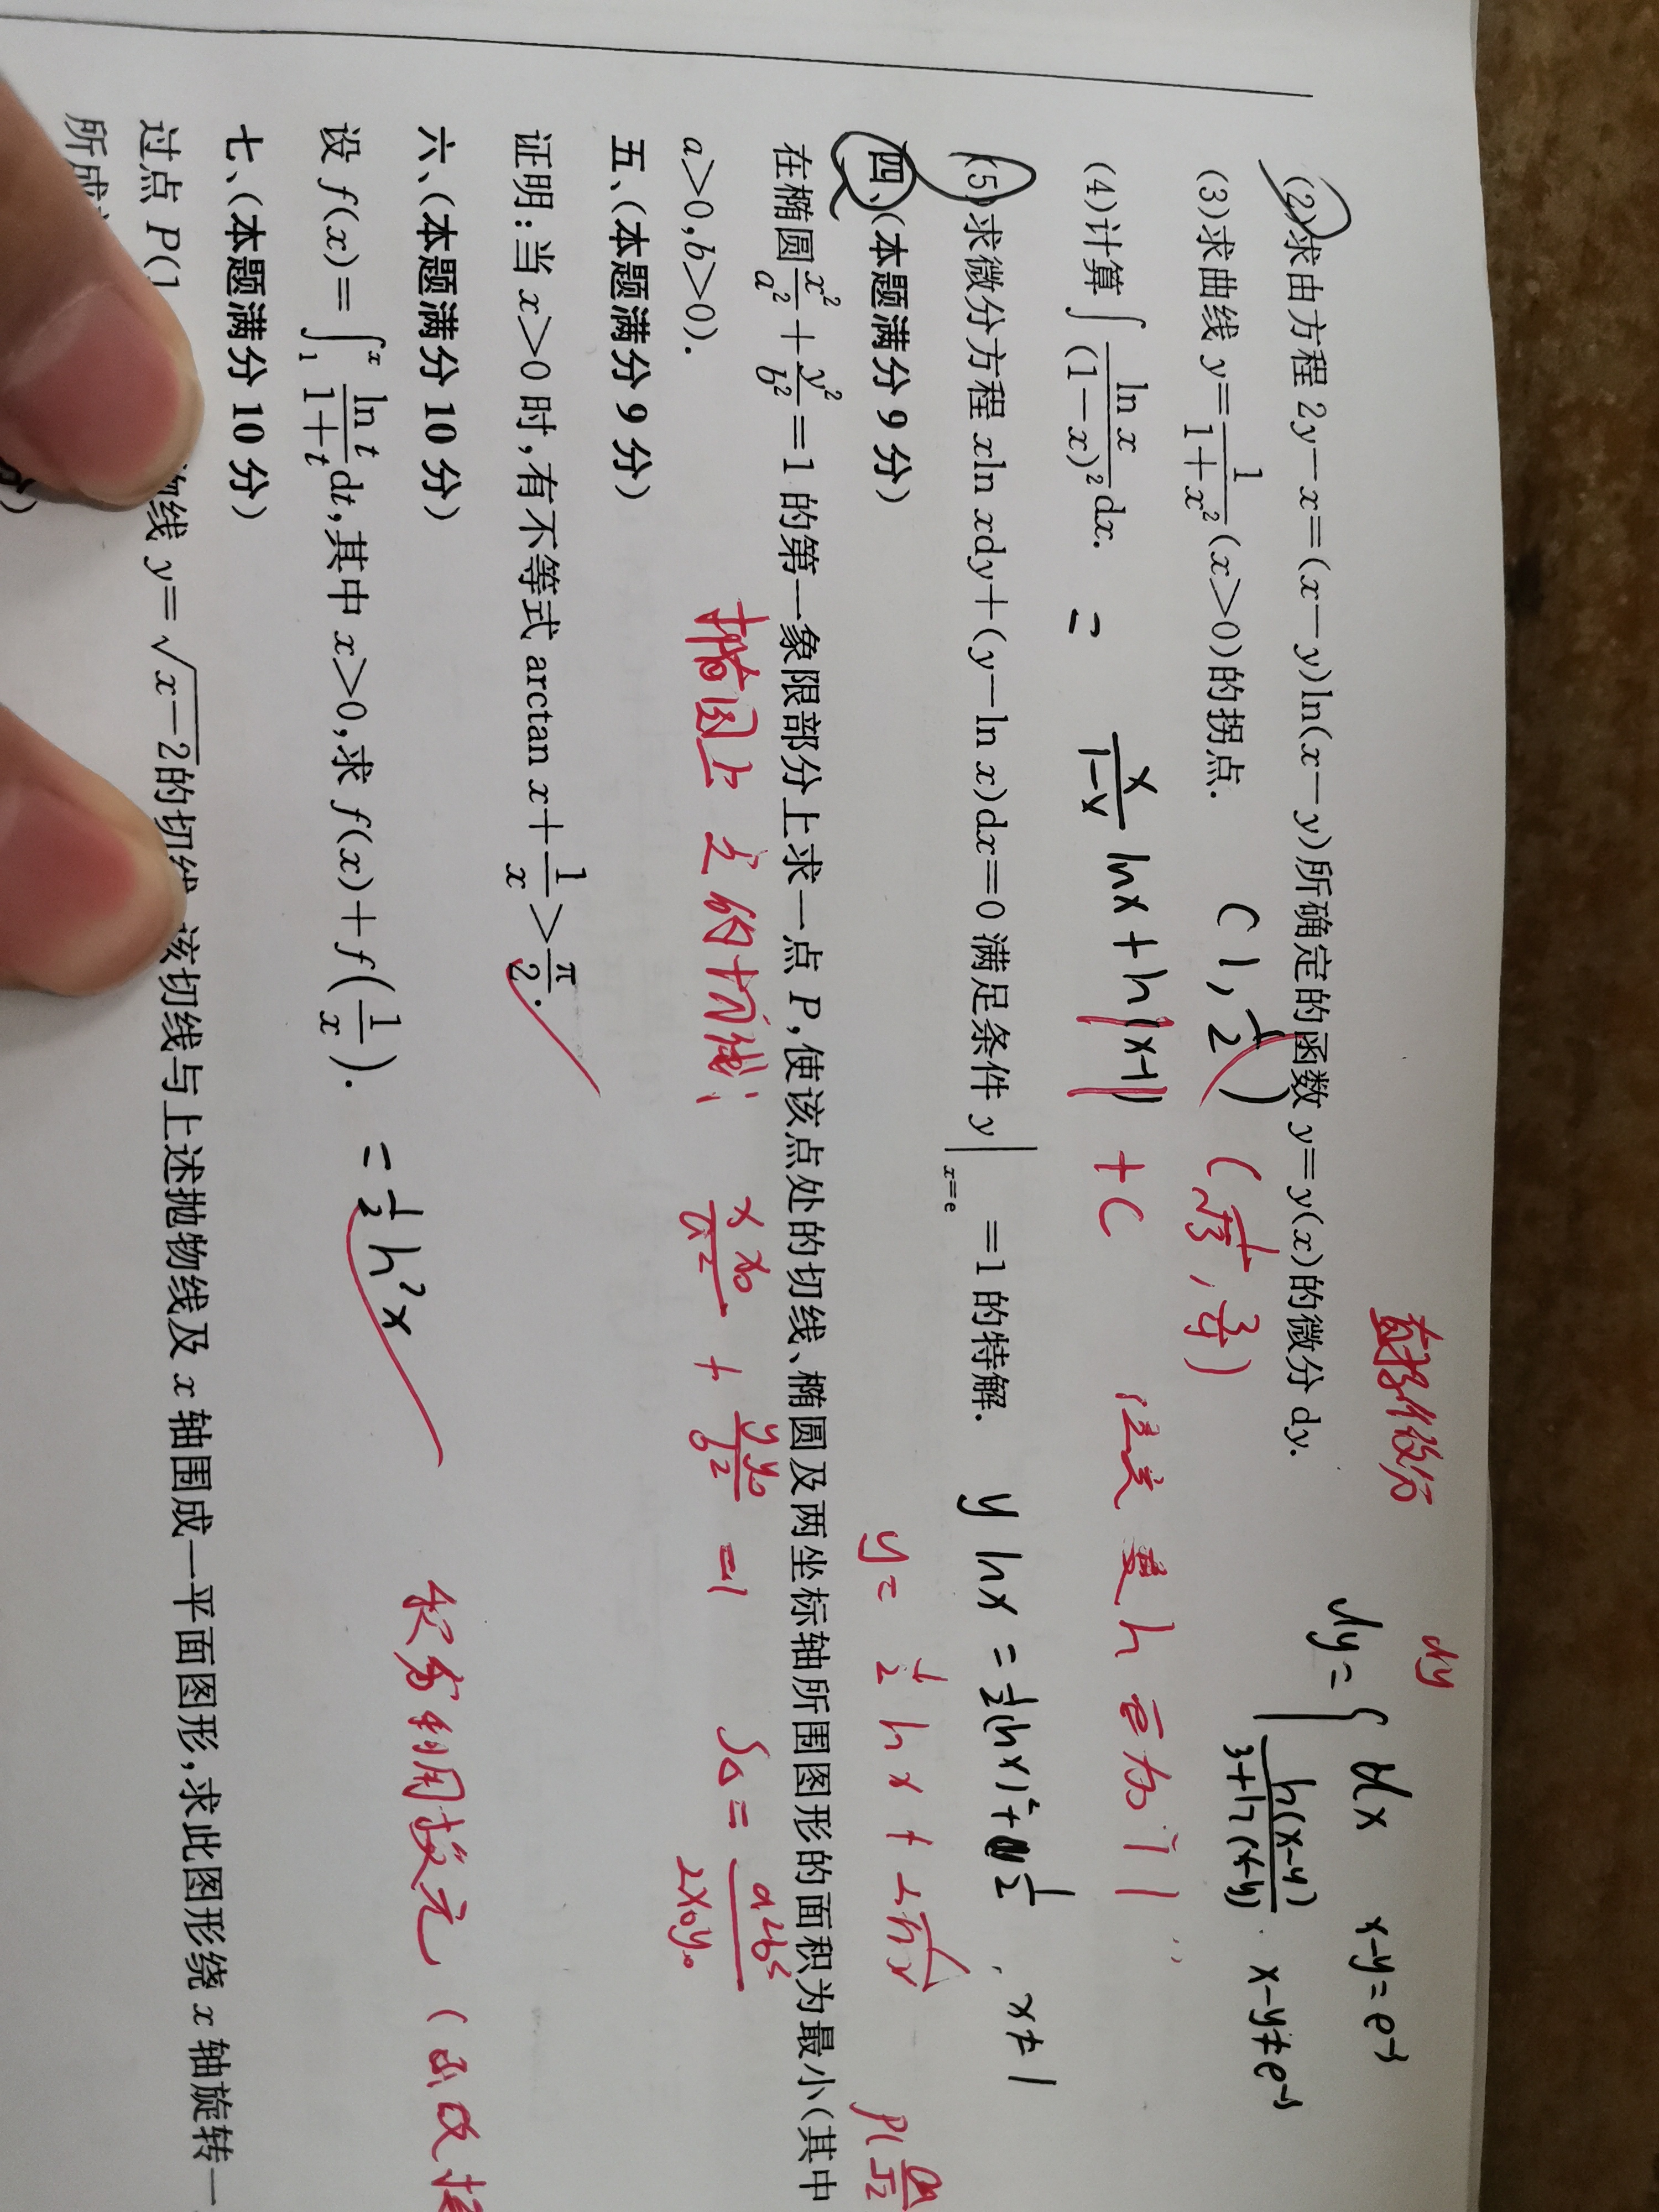 直接微分
dy
(2)求由方程 2y－x＝(x－y)ln(x－y)所确定的函数 y＝y(x)的微分 dy.
dy = { dx x-y=e⁻³
ln(x-y)/3+ln(x-y) . x-y≠e⁻³
(3)求曲线 y＝1/(1＋x²)(x＞0)的拐点. (1, 1/2) (1/√3, 3/4)
(4)计算∫ln x/(1－x)² dx. = x/(1-x) lnx + ln|x-1| + C
注意 是 ln 否为 ||
(5)求微分方程 xln xdy＋(y－ln x)dx＝0 满足条件 y|x＝e ＝1 的特解. y lnx = 1/2(lnx)² + 1/2 , x≠1
y= 1/2 lnx + 1/(2lnx)
四、(本题满分 9 分)
P(a/√2
在椭圆 x²/a²＋y²/b²＝1 的第一象限部分上求一点 P,使该点处的切线、椭圆及两坐标轴所围图形的面积为最小(其中
a＞0,b＞0).
椭圆上 的切线: xx₀/a² + yy₀/b² =1 S△= a²b²/2x₀y₀
五、(本题满分 9 分)
证明:当 x＞0 时,有不等式 arctan x＋1/x＞π/2.
六、(本题满分 10 分)
设 f(x)＝∫₁ˣ ln t/(1＋t) dt,其中 x＞0,求 f(x)＋f(1/x). = 1/2 ln²x
利用换元 (
七、(本题满分 10 分)
过点 P(1 物线 y＝√(x－2)的切线 该切线与上述抛物线及 x 轴围成一平面图形,求此图形绕 x 轴旋转一
所成